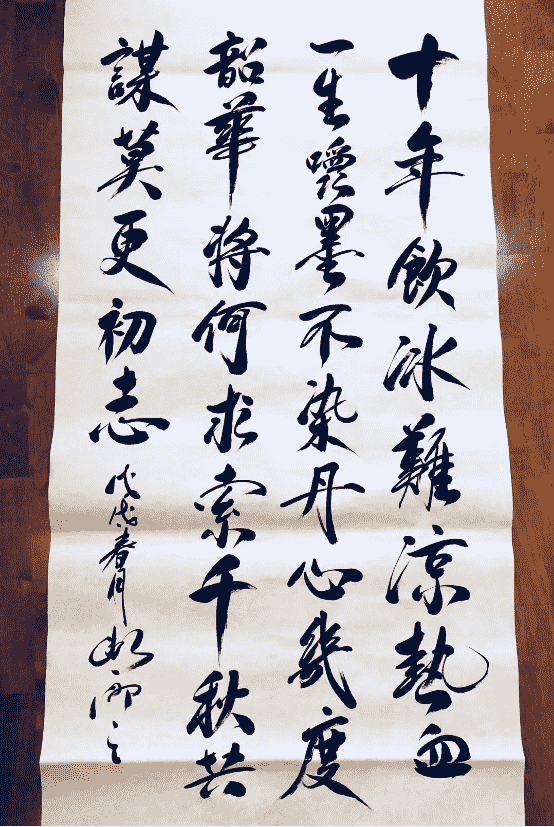 十年飲冰難涼熱血
一生嚼墨不染丹心幾度
韶華將何求索千秋共
謀莫更初志
戊戌春月